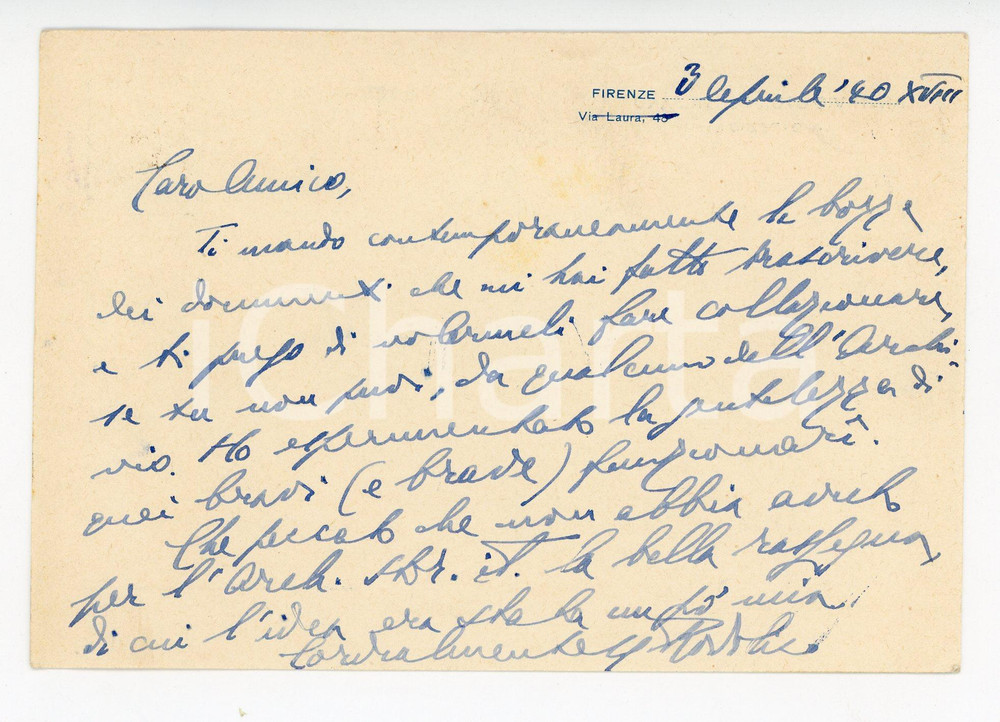 FIRENZE 3 Aprile '40 XVIII
Via Laura, 48
Caro Amico,
Ti mando contemporaneamente le bozze
dei documenti che mi hai fatto trascrivere,
e ti prego di volermeli fare collazionare,
se tu non puoi, da qualcuno dell'Archi-
vio. Ho esperimentato la gentilezza di
quei bravi (e brave) funzionari.
Che peccato che non abbia avuto
per l'Arch. stor. it. la bella rassegna,
di cui l'idea era stata un po' mia.
Cordialmente
iCharta